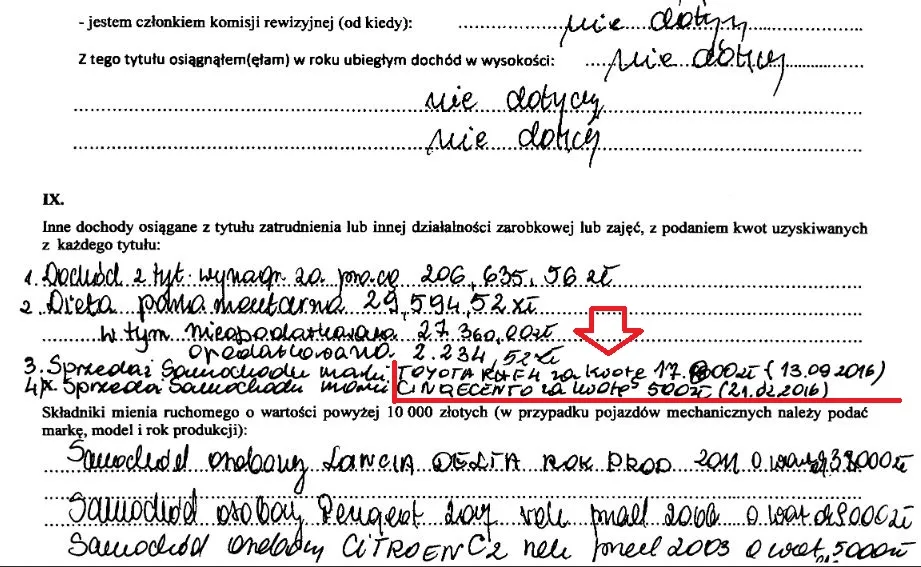 - jestem członkiem komisji rewizyjnej (od kiedy): nie dotyczy
Z tego tytułu osiągnąłem(ęłam) w roku ubiegłym dochód w wysokości: nie dotyczy
nie dotyczy
nie dotyczy
IX.
Inne dochody osiągane z tytułu zatrudnienia lub innej działalności zarobkowej lub zajęć, z podaniem kwot uzyskiwanych
z każdego tytułu:
1. Dochód z tyt. wynagr. za pracę 206,635,56 zł
2. Dieta parlamentarna 29,594,52 zł
w tym nieopodatkowana 27.360,00 zł
opodatkowana 2.234,52 zł
3. Sprzedaż Samochodu marki TOYOTA RAF4 za kwotę 17. 000zł (13.09.2016)
4. Sprzedaż Samochodu marki CINQECENTO za kwotę 500zł (21.02.2016)
Składniki mienia ruchomego o wartości powyżej 10 000 złotych (w przypadku pojazdów mechanicznych należy podać
markę, model i rok produkcji):
Samochód osobowy LANCIA DELTA ROK PROD 2011 o wart. 38000zł
Samochód osobowy Peugeot 207 rok prod 2006 o wart 9000zł
Samochód osobowy CITROEN C2 rok prod 2003 o wart. 5000zł